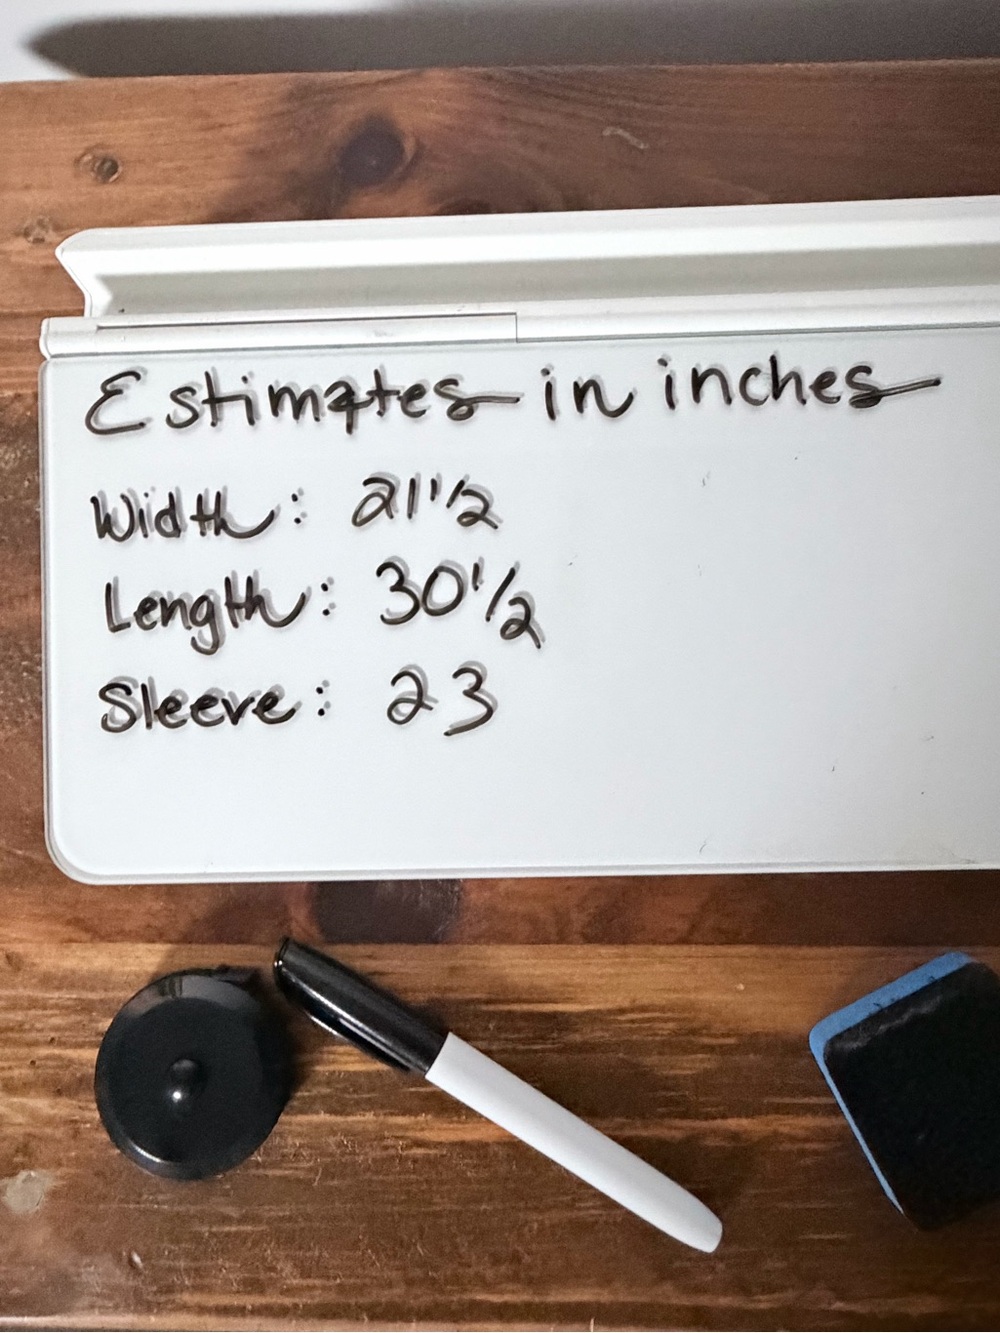 Estimates in inches
Width: 21 1/2
Length: 30 1/2
Sleeve: 23